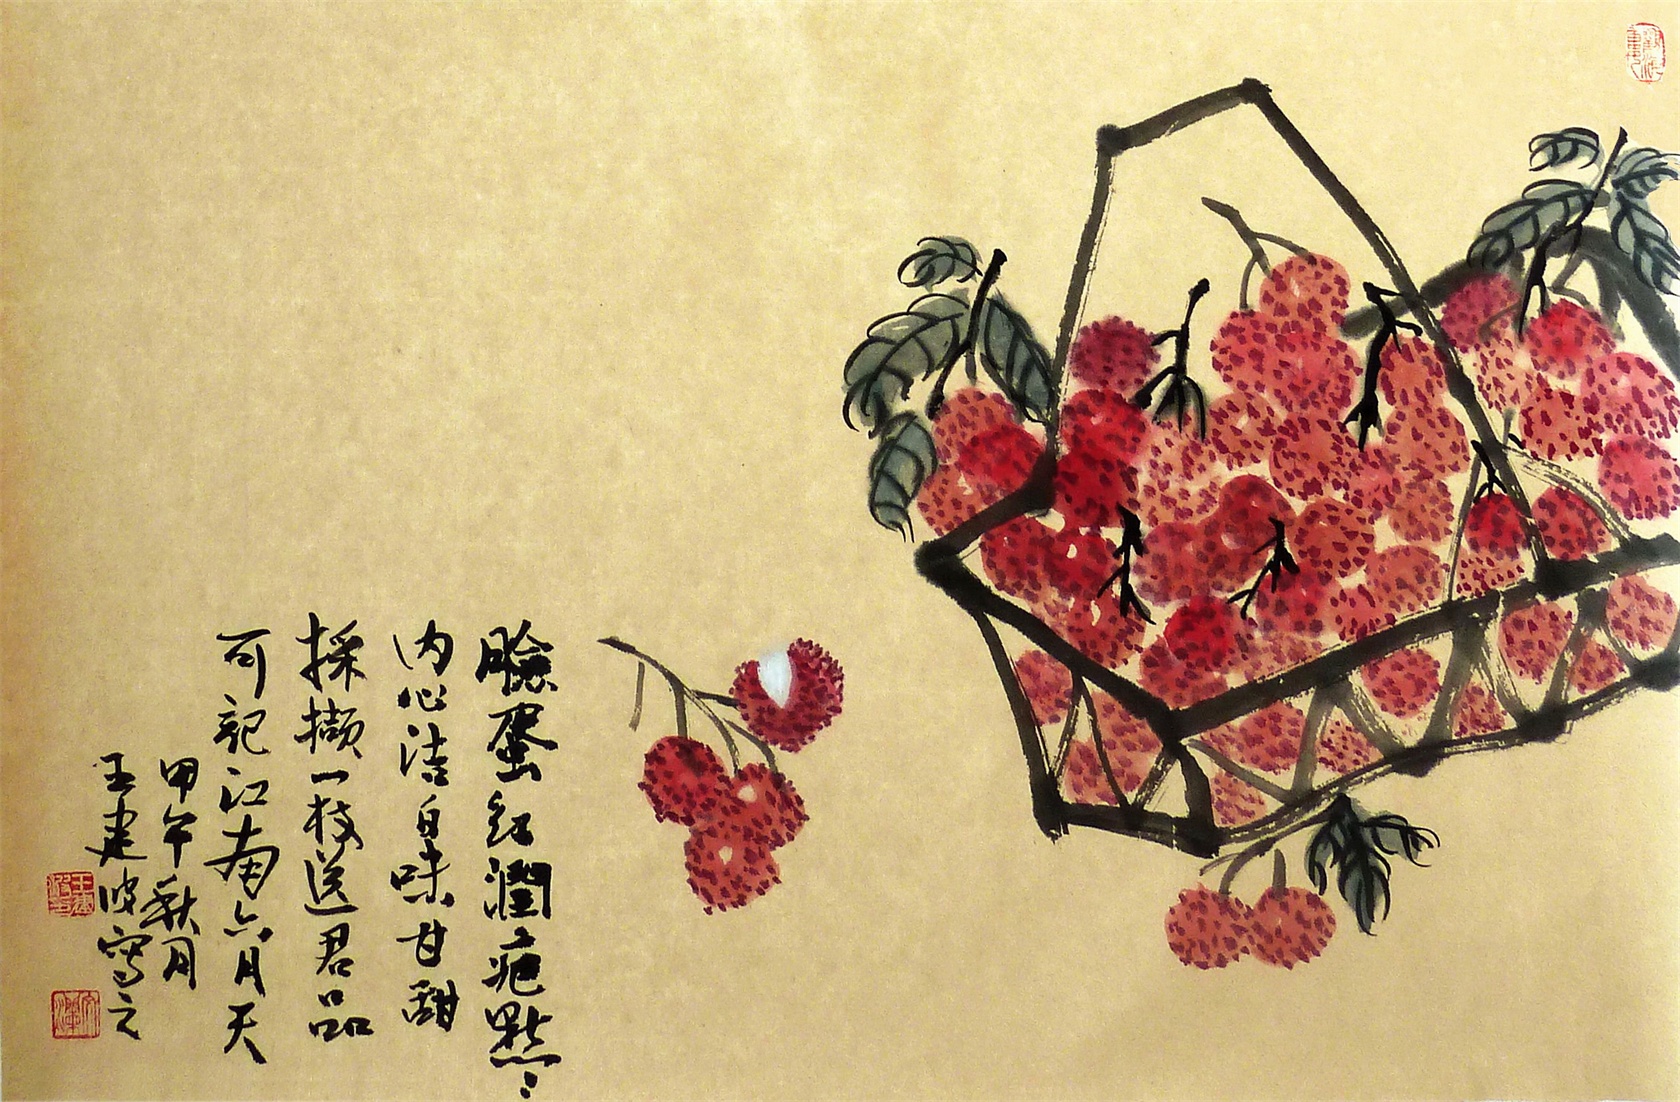 臉蛋紅潤疤點々
内心洁白味甘甜
採擷一枝送君品
可記江南六月天
甲午秋月
王建波写之